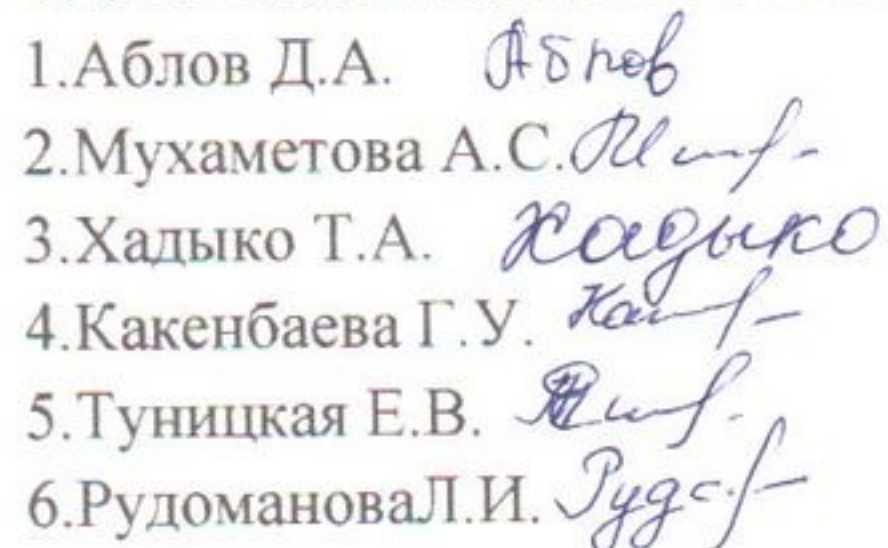 1.Аблов Д.А. Аблов
2.Мухаметова А.С.
3.Хадыко Т.А. Хадыко
4.Какенбаева Г.У.
5.Туницкая Е.В.
6.РудомановаЛ.И.